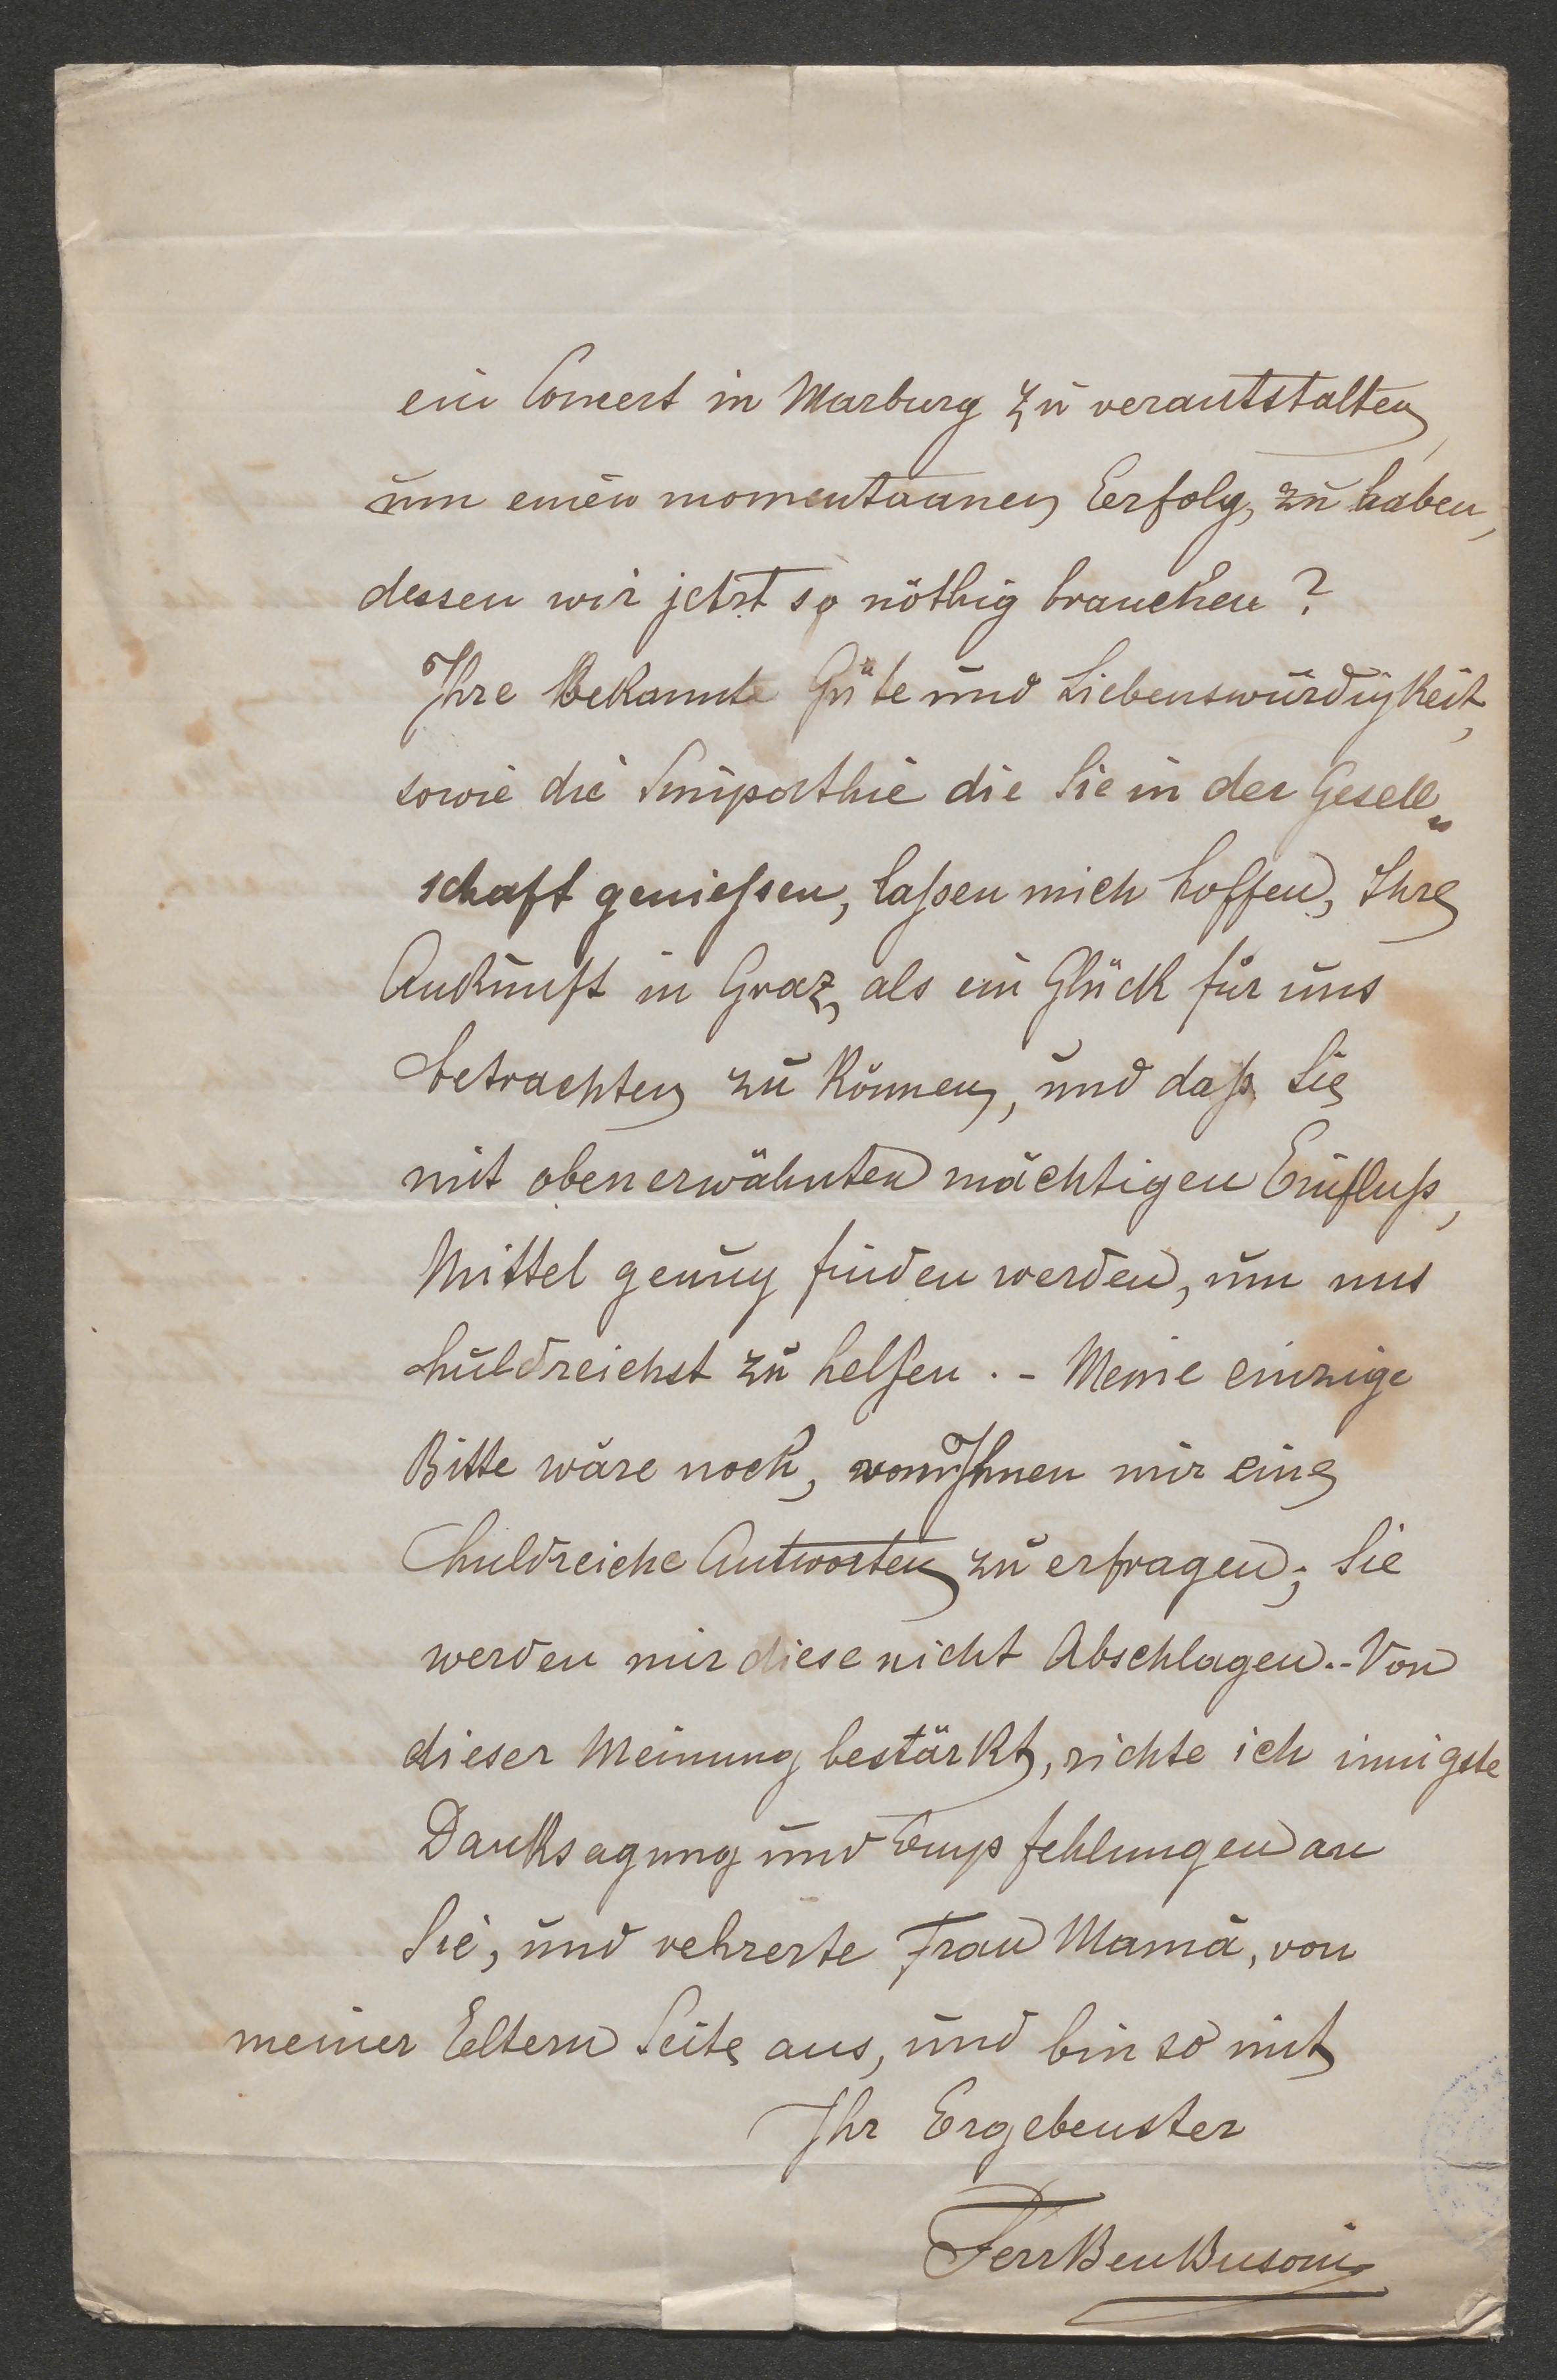 ein Concert in Marburg zu verantstalten,
um einen momentaanen Eerfolg, zu haben,
dessen wir jetzt so nöthig brauchen?
Ihre Bekannte Güte und Liebenswürdigkeit,
sowie die Simpathie die Sie in der Gesell„
schaft genießen, laßen mich hoffen, Ihre
Ankunft in Graz, als ein Glück für uns
betrachten zu können, und daß Sie
mit obenerwähnten mächtigen Einfluß,
Mittel genug finden werden, um uns
huldreichst zu helfen. - Meine einzige
Bitte wäre noch, von Ihnen mir eine
huldreiche Antworten zu erfragen; Sie
werden mir diese nicht Abschlagen. - Von
dieser Meinung bestärkt, richte ich innigste
Danksagung und Empfehlungen an
Sie, und vehrerte Frau Mamà, von
meiner Eltern Seite aus, und bin so mit
Ihr Ergebenster
FerrBenBusoni